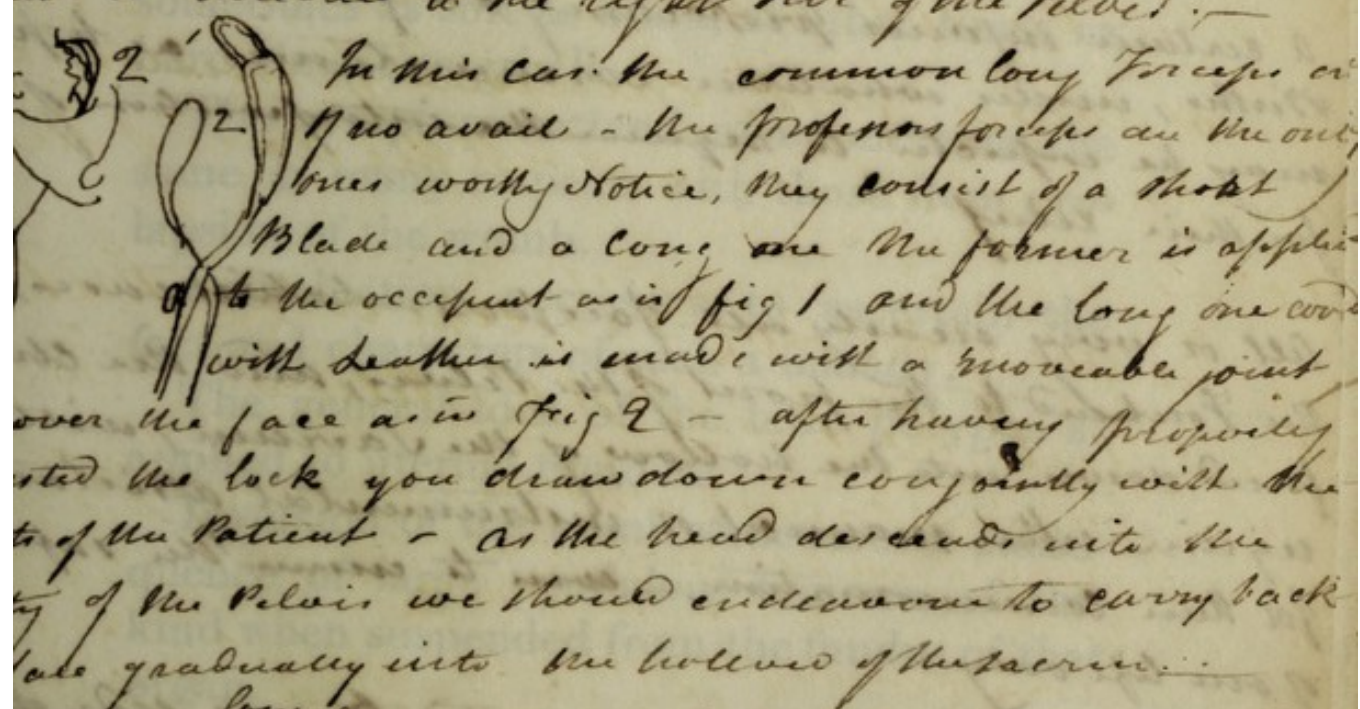 to the right side of the Pelvis. —
2 In this Case the common long Forceps ar
2 of no avail - the professors forceps are the only
ones worthy Notice, they consist of a short
Blade and a long one the former is applied
to the occiput as in fig 1 and the long one cov
with Leather is made with a moveable joint
over the face as in Fig 2 - after having properly
sted the lock you draw down conjointly with the
ts of the Patient - as the head descends into the
ty of the Pelvis we should endeavour to carry back
face gradually into the hollow of the sacrum...